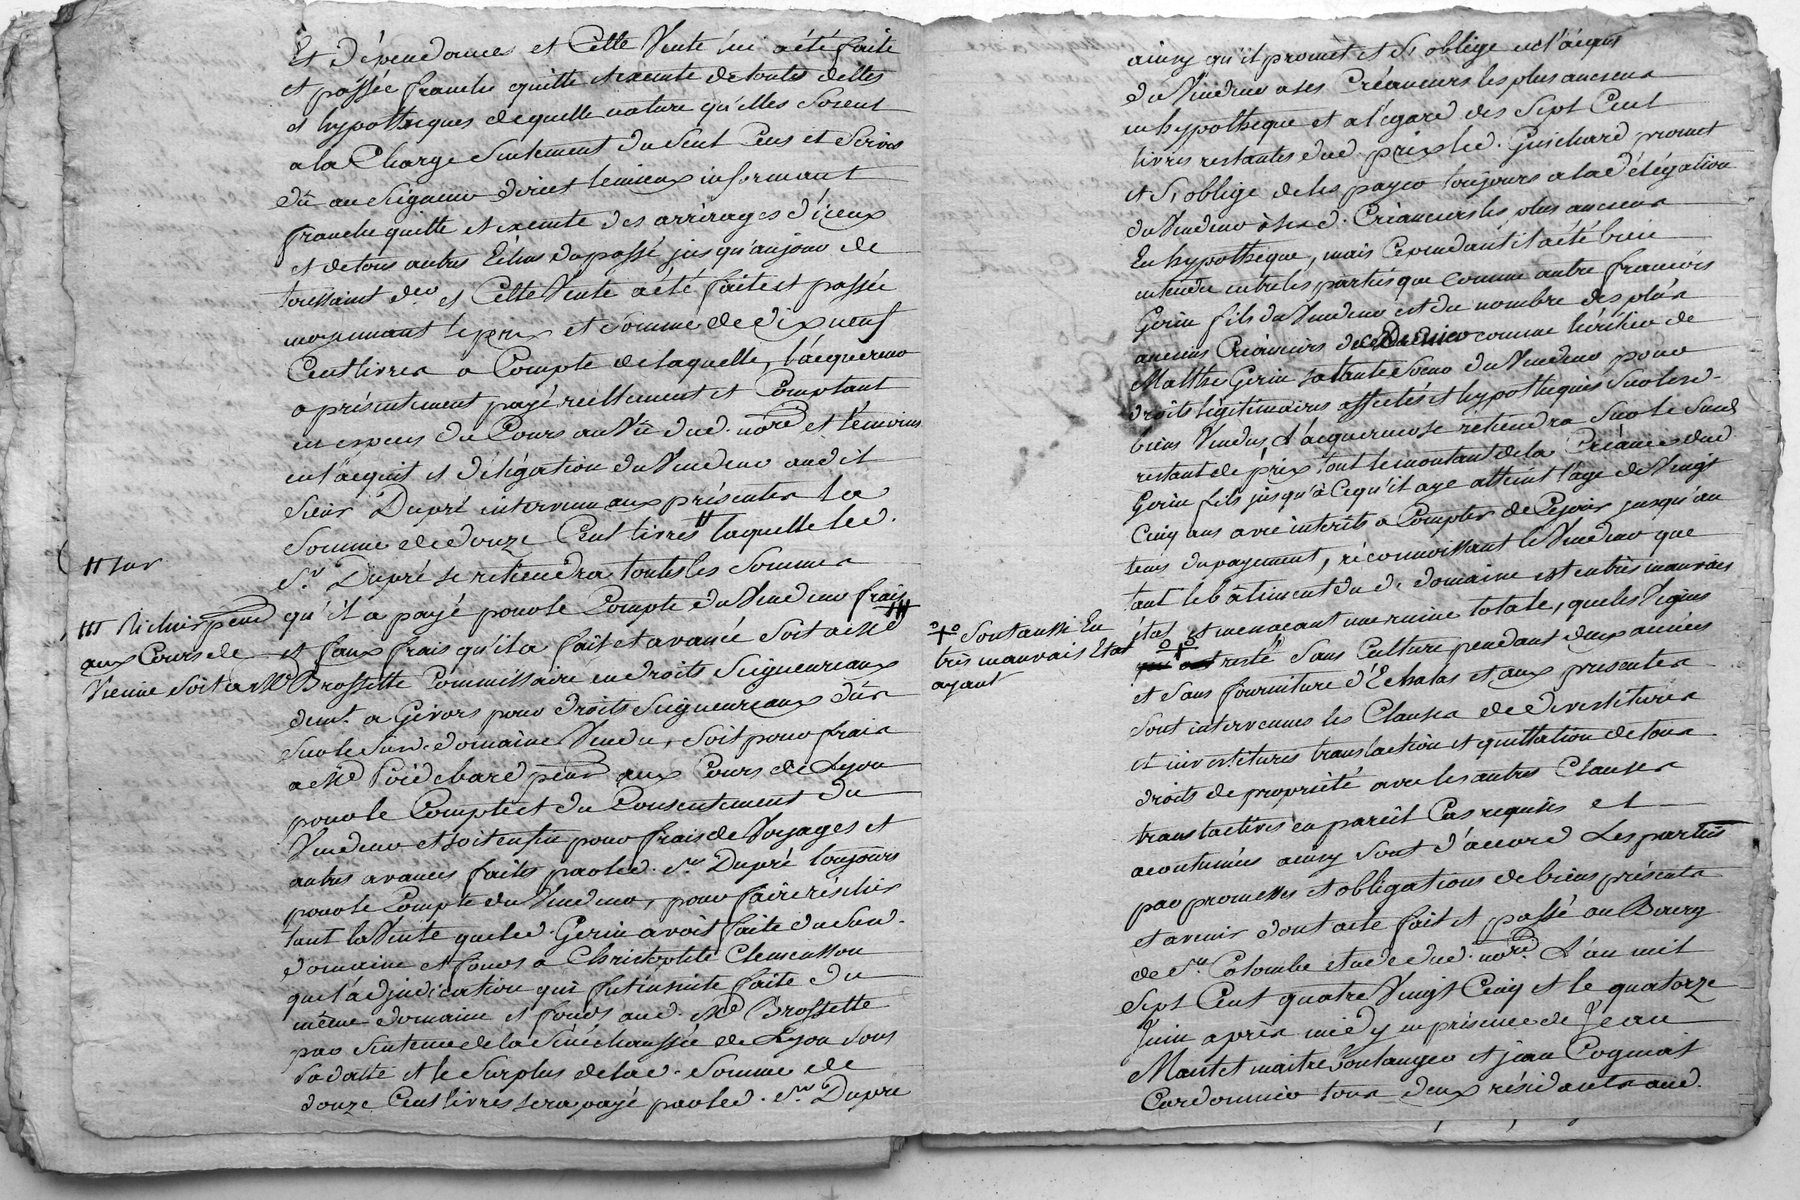 Et Dépendances et Cette Vente lui a été faite
et passée franche quitte et exemte de toutes dettes
et hypothèques de quelle nature qu'elles soient
a la Charge seulement du seul Cens et Servis
dû au Seigneur direct le mieux informant
franche quitte et exemte des arrérages d'iceux
et de tous autres du passé jusqu'au jour de
toussaint et Cette Vente a été faite et passée
moyennant le prix et Somme de dix neuf
Cent livres a Compte de laquelle, l'acquereur
a présentement payé réellement et Comptant
en espèces du Cours au Vû dud. nore et témoins
en l'acquit et délégation du Vendeur audit
Sieur Dupré intervenu aux présentes la
Somme de douze Cent livres # laquelle led.
# sur
Sr Dupré se retiendra toutes les Sommes
qu'il a payé pour le Compte du Vendeur frais
et faux frais qu'il a fait et avancé Soit a Me
aux Cours de
Vienne Soit a Me
Brossette Commissaire en droits Seigneuriaux
demt. a Givors pour droits Seigneuriaux dûs
Sur le Susd. domaine Vendu, Soit pour frais
a Me Poidebard aux Cours de Lyon
pour le Compte et du Consentement du
Vendeur et soit enfin pour frais de Voyages et
autres avances faites par led. Sr Dupré toujours
pour le Compte du Vendeur, pour faire résilier
tant la Vente que led. Gerin avoit faite du Susd.
domaine et fonds a Christophle Clemensson
que l'adjudication qui fut ensuite faite du
même domaine et fonds aud. Me Brossette
par Sentence de la Sénéchaussée de Lyon Sous
Sa datte et le Surplus de lad. Somme de
douze Cent livres sera payé par led. Sr Dupré
ainsy qu'il promet et S'oblige en l'acquit
du Vendeur a ses Créanciers les plus anciens
en hypothèque et a l'égard des Sept Cent
livres restantes dud. prix led. Guichard promet
et S'oblige de les payer toujours a la délégation
du Vendeur à sesd. Créanciers les plus anciens
En hypothèque, mais Cependant il a été bien
entendu entre les parties que comme autre françois
Gerin fils du Vendeur est du nombre des plus
anciens Créanciers comme héritier de
Matthie Gerin sa tante Soeur du Vendeur pour
droits légitimaires affectés et hypothequés Sur lesd.
biens Vendus, l'acquereur se retiendra Sur le Susd.
restant de prix tout le montant de la Créance dud.
Gerin fils jusqu'à Ce qu'il aye atteint l'age de Vingt
Cinq ans avec intérêts a Compter de Cejour jusqu'au
tems du payement, réconnoissant le Vendeur que
tant le bâtiment dud. domaine est en très mauvais
état et menaçant une ruine totale, que les Vignes
Sont aussi En
très mauvais Etat
ayant
resté Sans Culture pendant deux années
et Sans fourniture d'Echalas et aux presentes
sont intervenues les Clauses de divestitures
et investitures translaction et quittation de tous
droits de propriété avec les autres Clauses
translatives en pareil Cas requises et
acoutumées ainsy Sont d'accord Les parties
par promesses et obligations de biens présents
et avenir dont acte fait et passé au Bourg
de Ste Colombe étude dud. nore. L'an mil
Sept Cent quatre Vingt Cinq et le quatorze
Juin après midy en présence de Jean
Mantet maitre boulanger et jean Cognat
Cordonnier tous deux résidants aud.